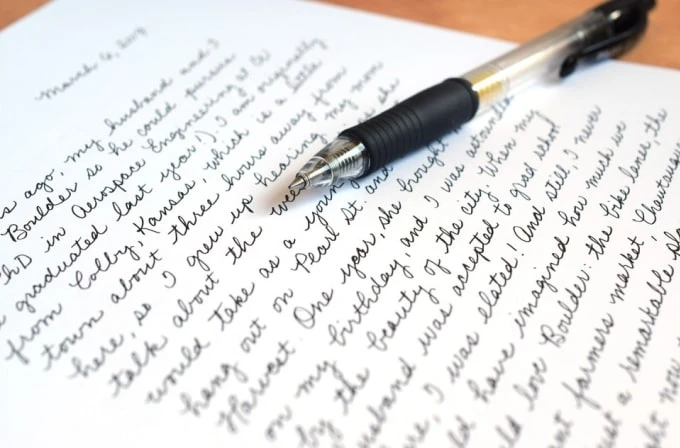 March 6, 20
ago, my husband and I
Boulder so he could pursue
PhD in Aerospace Engineering at
graduated last year!). I am originally
from Colby, Kansas, which is a little
town about three hours away from
here, so I grew up hearing my mom
talk about the
would take as a young
hang out on Pearl St. and
Harvest. One year, she brought
on my birthday, and I was astounded
by the beauty of the city. When my
husband was accepted to grad school
I was elated! And still, I never
have imagined how much we
love Boulder: the bike lanes, the
farmers market, Chautauqua
a remarkable
now